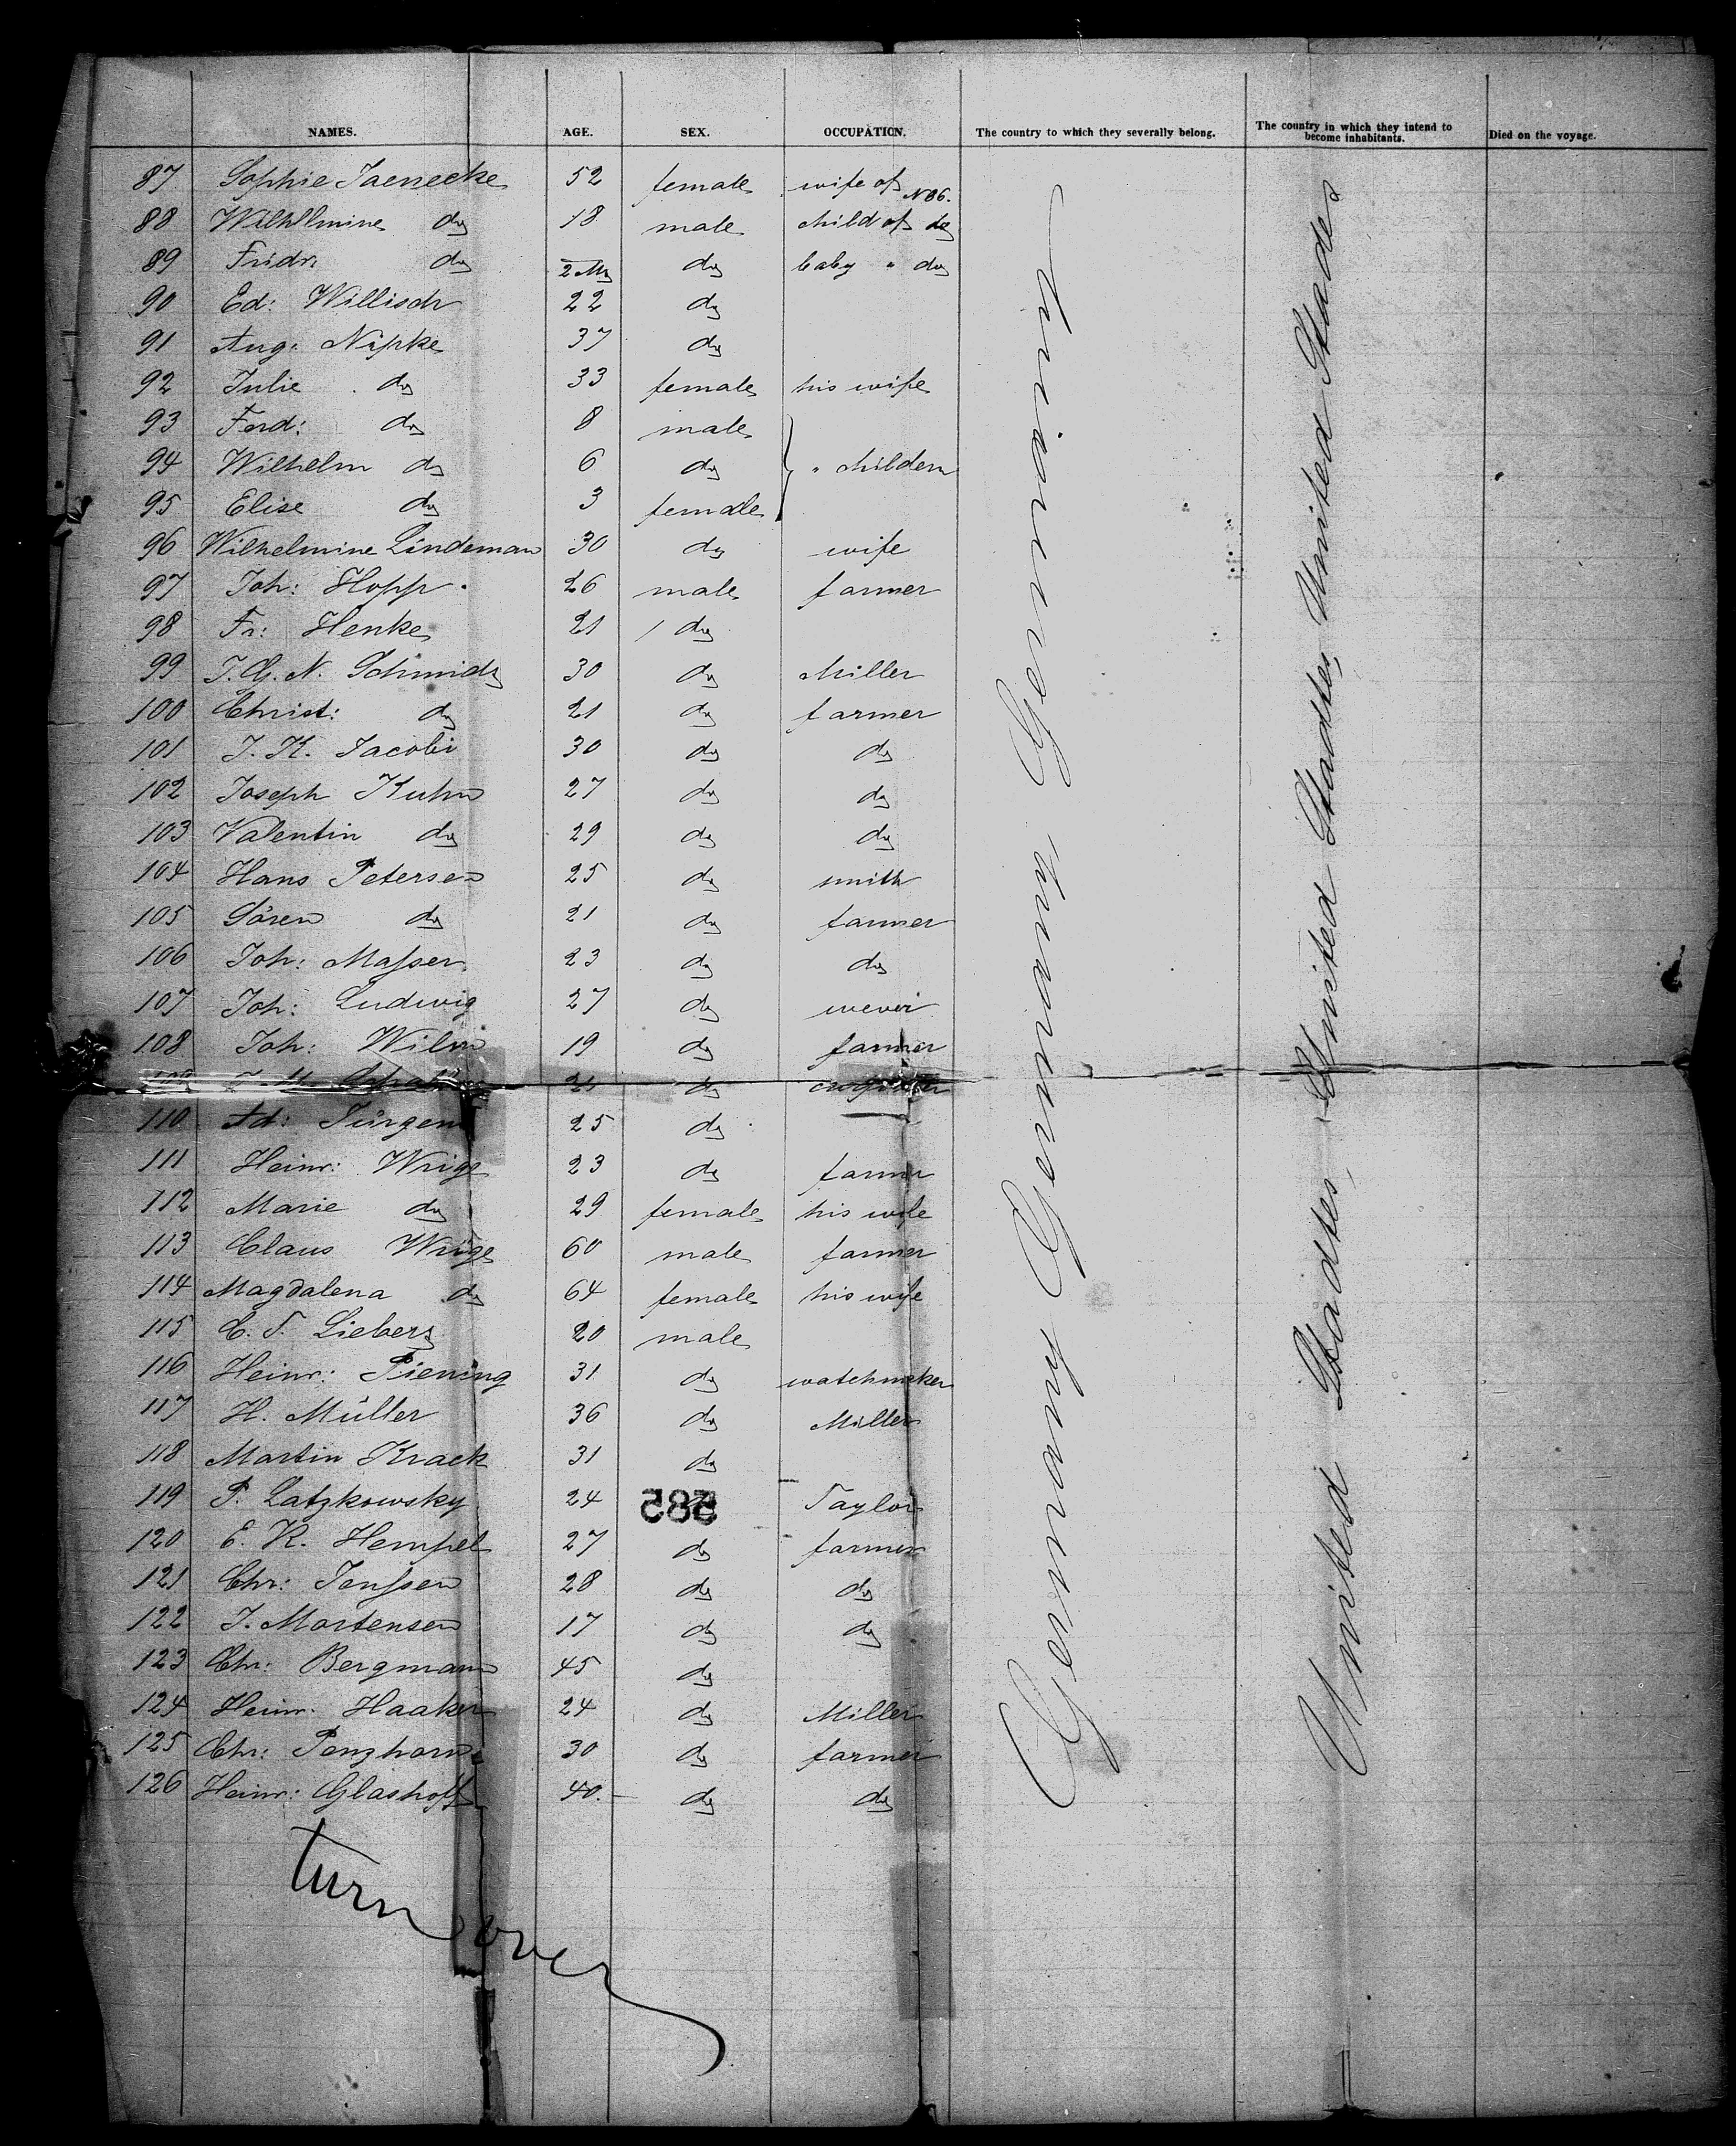 NAMES. AGE. SEX. OCCUPATION. The country to which they severally belong. The country in which they intend to become inhabitants. Died on the voyage.
87 Sophie Jaenecke 52 female wife of N86.
88 Wilhelmine do 18 male child of do
89 Fridr: do 2 M do baby " do
90 Ed: Willisch 22 do
91 Aug: Nipke 37 do
92 Julie do 33 female his wife
93 Ferd: do 8 male
94 Wilhelm do 6 do " childern
95 Elise do 3 female
96 Wilhelmine Lindeman 30 do wife
97 Joh: Hopp 26 male farmer
98 Fr: Henke 21 do
99 J. G. N. Schmidt 30 do Miller
100 Christ: do 21 do farmer
101 J. K. Jacobi 30 do do
102 Joseph Kuhn 27 do do
103 Valentin do 29 do do
104 Hans Petersen 25 do smith
105 Sören do 21 do farmer
106 Joh: Maſser 23 do do
107 Joh: Ludwig 27 do wever
108 Joh: Wilm 19 do farmer
109 do
110 Ad: Jürgen 25 do
111 Heinr: Wrige 23 do farmer
112 Marie do 29 female his wife
113 Claus Wrige 60 male farmer
114 Magdalena do 64 female his wife
115 C. F. Liebers 20 male
116 Heinr: Piening 31 do watchmaker
117 H. Müller 36 do Miller
118 Martin Krack 31 do
119 P. Latzkowsky 24 Taylor
120 E. R. Hempel 27 do farmer
121 Chr: Jenſsen 28 do do
122 J. Mortensen 17 do do
123 Chr: Bergmann 45 do
124 Heinr. Haaker 24 do Miller
125 Chr: Penzhorn 30 do farmer
126 Heinr: Glashoff 40. do do
Germany Germany Germany
United Stadtes, United Stadtes, United Stades
585
turn over